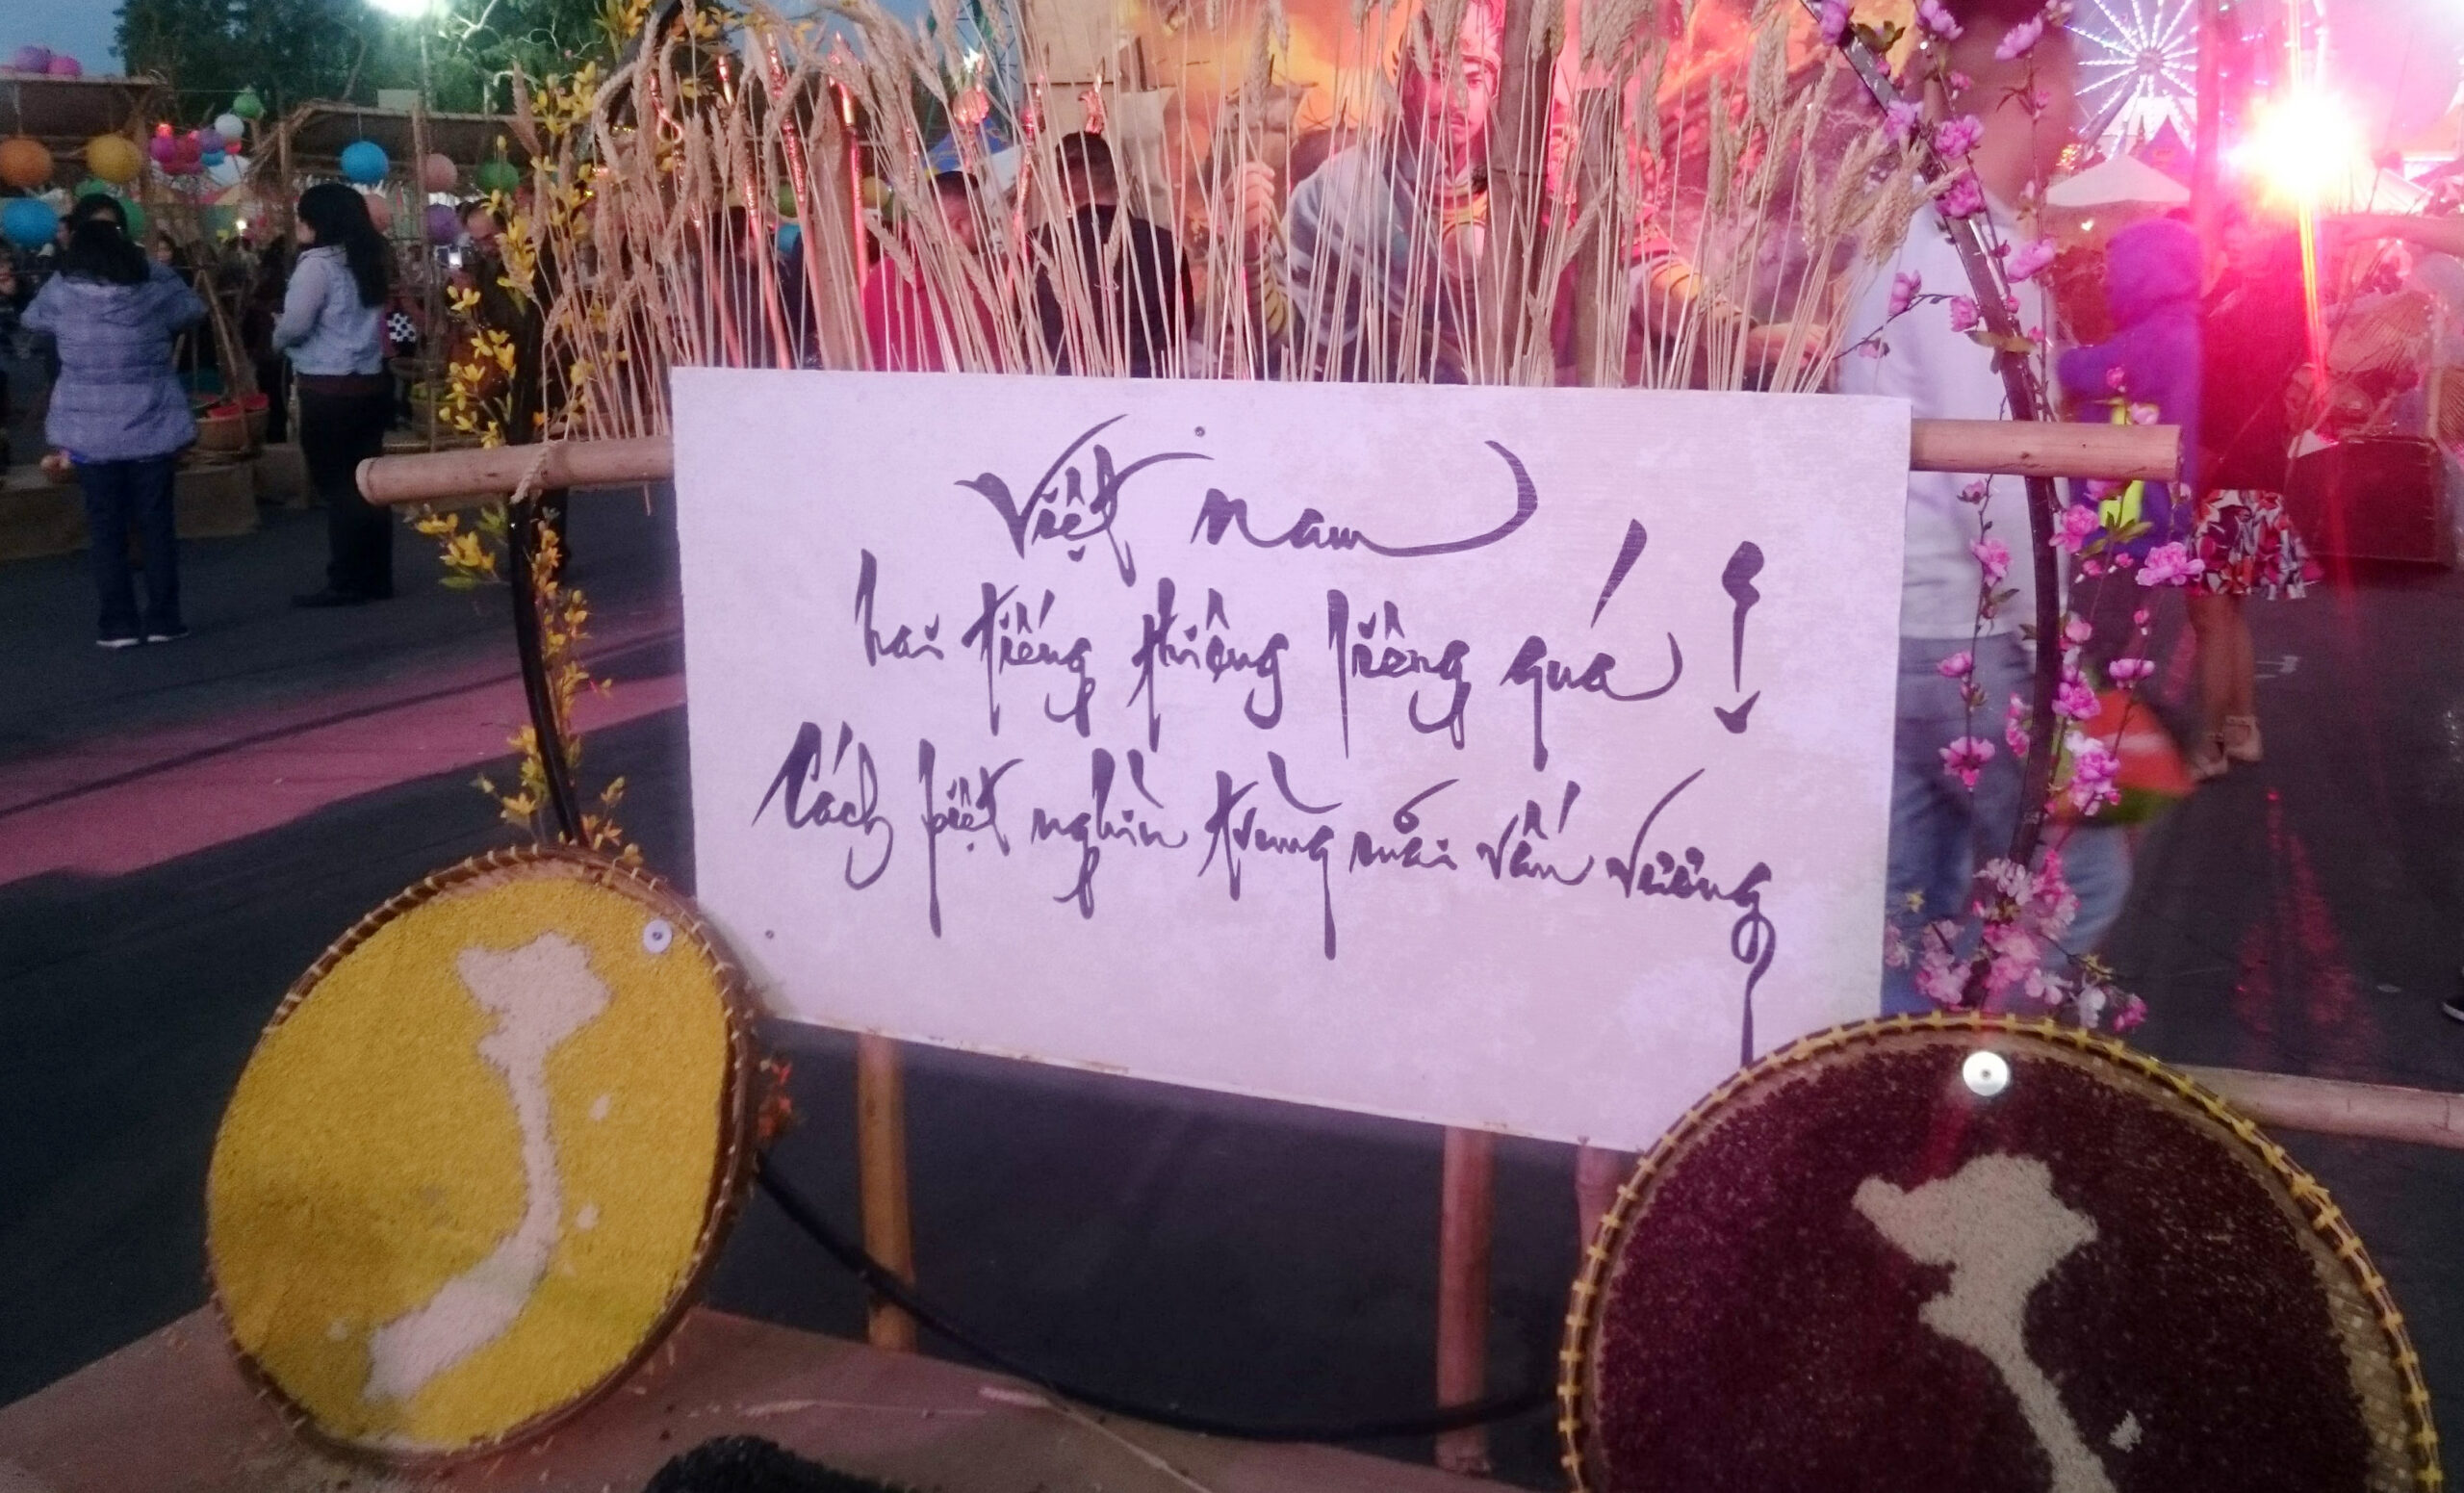 Việt Nam
hai tiếng thiêng liêng quá!
Cách biệt nghìn trùng mãi vấn vương